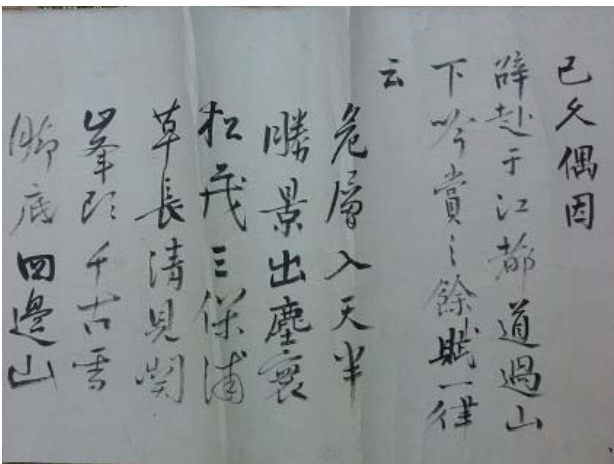 已久偶因
辭赴于江都道過山
下吟賞之餘賦一律
云
危層入天半
勝景出塵寰
松茂三保浦
草長清見關
峯頭千古雪
腳底四邊山